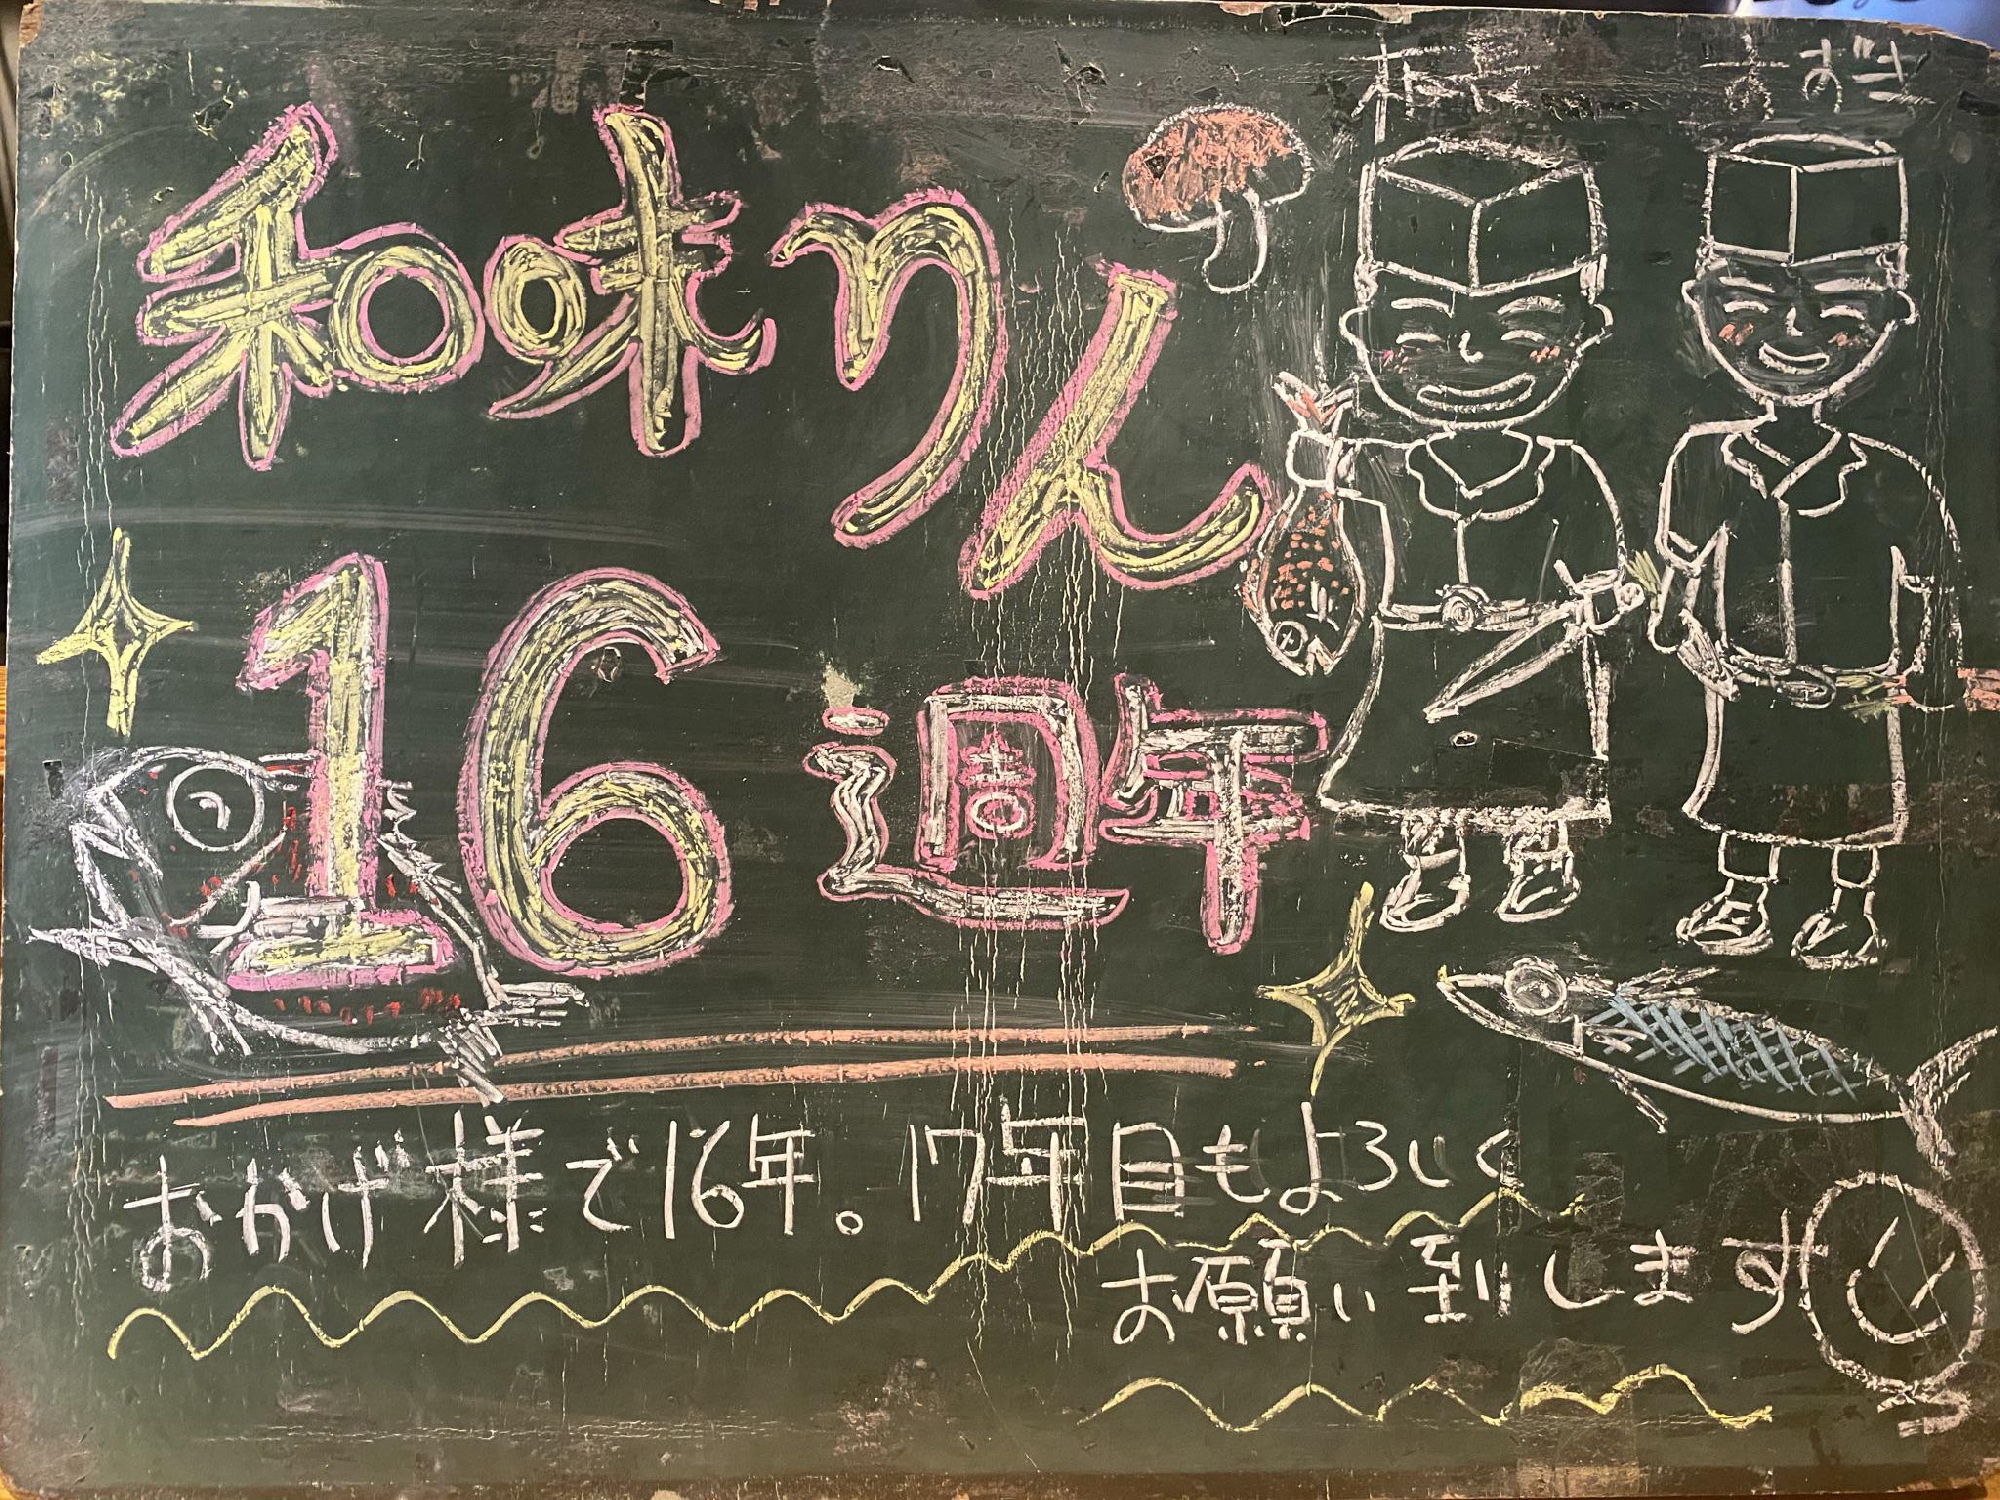 和味りん
16週年
おかげ様で16年。17年目もよろしく
お願い致します